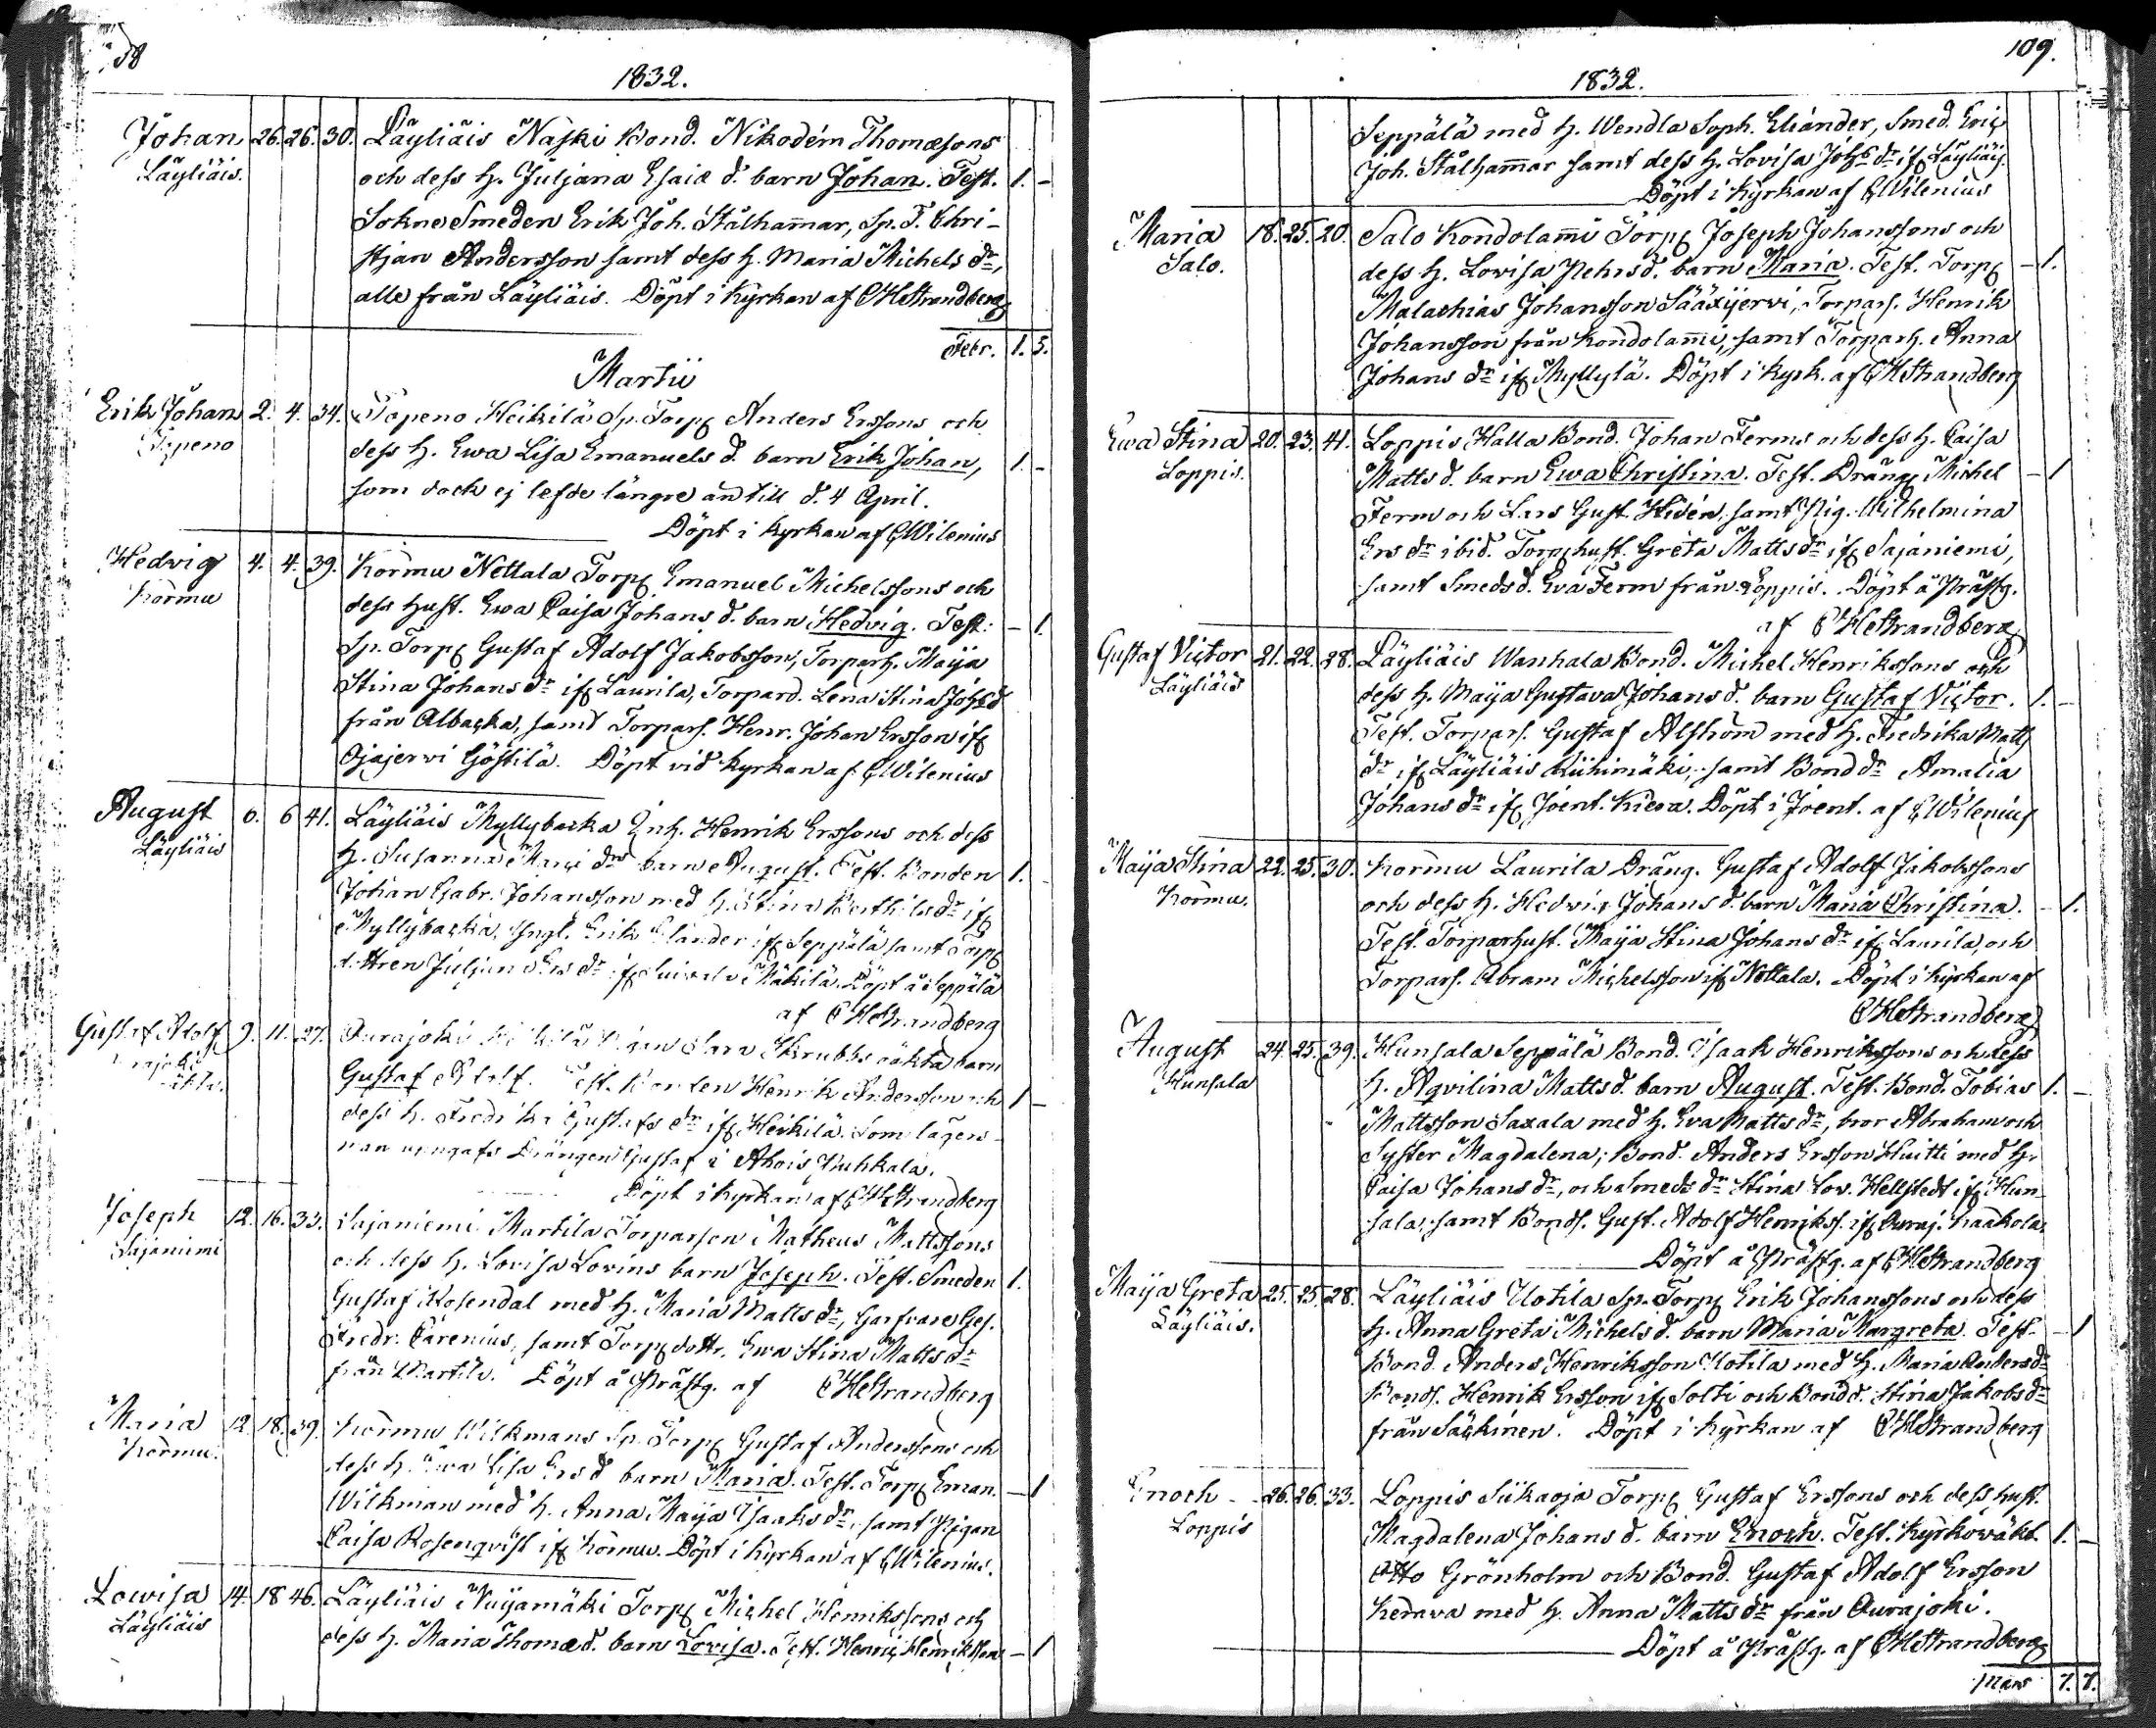 1832.
Johan 26. 26. 30. Läyliäis Naski Bond. Nikodém Thomæsons
Läyliäis. och dess h. Juljana Esaiæ d. barn Johan. Test. 1. –
Sokne Smeden Erik Joh. Stålham̄ar, Sp. T. Chri-
stjan Andersson samt dess h. Maria Michels dr,
alle från Läyliäis. Döpt i Kyrkan af CHStrandberg
Febr. 1. 5.
Martii
Erik Johan 2. 4. 34. Topeno Heikilä Sp. Torp Anders Erssons och
Topeno dess h. Ewa Lisa Emanuels d. barn Erik Johan, 1. –
som dock ej lefde längre än till d. 4 April.
Döpt i Kyrkan af CWilenius
Hedvig 4. 4. 39. Kormu Nettala Torp Emanuel Michelssons och
Kormu dess hust. Ewa Caisa Johans d. barn Hedvig. Test: – 1.
Sp. Torp Gustaf Adolf Jakobsson, Torparh. Maija
Stina Johans dr if Laurila, Torpard. Lena Stina Johs d
från Albacka, samt Torpars. Henr. Johan Ersson if
Ojajervi Göstilä. Döpt vid Kyrkan af CWilenius
August 6. 6 41. Läyliäis Myllybacka Inh. Henrik Erssons och dess
Läyliäis h. Susanna dr barn August. Test. Bonden 1.
Johan Gabr. Johansson med h. Stina Berthils dr if
Myllybacka, Yngl. Erik Elander if Seppälä samt Torp
dottren Juljana Ers dr if Mäkilä. Döpt å Seppälä
af CHStrandberg
Gustaf Adolf 9. 11. 27. Ourajoki Heikilä Pigan Sara Skrubbs oäkta barn
Gustaf Adolf. Test. Bonden Henrik Andersson och 1 –
dess h. Fredrika Gustafs dr if Heikilä. Som lägers-
man uppgafs Drängen Gustaf i Ahois Kuhkala.
Döpt i Kyrkan af CHStrandberg
Joseph 12. 16. 33. Sajaniemi Martila Torparson Matheus Mattssons
Sajaniemi och dess h. Lovisa Lovins barn Joseph. Test. Smeden 1.
Gustaf Rosendal med h. Maria Matts dr, Garfvare Ges.
Fredr. Carenius, samt Torp dottr. Ewa Stina Matts dr
från Martila. Döpt å Prästg. af CHStrandberg
Maria 12. 18. 39. Kormu Wilkmans Sp. Torp Gustaf Anderssons och
Kormu. dess h. Ewa Lisa Ers d barn Maria. Test. Torp Eman. – 1
Wilkman med h. Anna Maija Isaaks dr, samt Pigan
Caisa Rosenqvist if Kormu. Döpt i Kyrkan af CWilenius.
Lowisa 14. 18 46. Läyliäis Nuijamäki Torp Michel Henrikssons och
Läyliäis dess h. Maria Thomæ d. barn Lovisa. Test. Henric Henriksson – 1
109.
1832.
Seppälä med h. Wendla Soph. Eliander, Smed. Eric
Joh. Stålham̄ar samt dess h. Lovisa Johs dr if Läyliäis.
Döpt i Kyrkan af CWilenius
Maria 18. 25. 20. Salo Kondolam̄i Torp Joseph Johanssons och
Salo. dess h. Lovisa Pehrs d. barn Maria. Test. Torp – 1.
Malachias Johansson Sääxijervi, Torpars. Henrik
Johansson från Kondolam̄i, samt Torparh. Anna
Johans dr if Myllylä. Döpt i Kyrk. af CHStrandberg
Ewa Stina 20. 23. 41. Loppis Halla Bond. Johan Ferms och dess h. Caisa
Loppis. Matts d. barn Ewa Christina. Test. Dräng Michel – 1
Ferm och Lars Gust. Hidén, samt Pig. Wilhelmina
Ers dr ibid. Torp hust. Greta Matts dr if Sajaniemi,
samt Smeds d. Eva Ferm från Loppis. Döpt å Prästg.
af CHStrandberg
Gustaf Victor 21. 22. 28. Läyliäis Wanhala Bond. Michel Henrikssons och
Läyliäis dess h. Maija Gustava Johans d. barn Gustaf Victor. 1. –
Test. Torpars. Gustaf Alström med h. Fredrika Matts
dr if Läyliäis Kiihimäki, samt Bond dr Amalia
Johans dr if Joent. Kieva. Döpt i Joent. af CWilenius
Maija Stina 22. 25. 30. Kormu Laurila Dräng. Gustaf Adolf Jakobssons
Kormu. och dess h. Hedvig Johans d. barn Maria Christina. – 1.
Test. Torparhust. Maija Stina Johans dr if Laurila, och
Torpars. Abram Michelsson if Nettala. Döpt i Kyrkan af
CHStrandberg
August 24. 25. 39. Hunsala Seppälä Bond. Isaak Henrikssons och dess
Hunsala h. Aqvilina Matts d. barn August. Test. Bond. Tobias 1. –
Mattsson Saxala med h. Eva Matts dr, bror Abraham och
Syster Magdalena; Bond. Anders Ersson Huitti med h.
Caisa Johans dr, och Smeds dr Stina Lov. Hellstedt if Hun-
sala, samt Bonds. Gust. Adolf Henrikss. if Ouraj. Kaakola.
Döpt å Prästg. af CHStrandberg
Maija Greta 25. 25. 28. Läyliäis Uotila Sp. Torp Erik Johanssons och dess
Läyliäis. h. Anna Greta Michels d. barn Maria Margreta. Test. – 1
Bond. Anders Henriksson Uotila med h. Maria Anders dr
Bonds. Henrik Ersson if Solti och Bond d. Stina Jakobs dr
från Säckinen. Döpt i Kyrkan af CHStrandberg
Enoch 26. 26. 33. Loppis Siikaoja Torp Gustaf Erssons och dess hust.
Loppis Magdalena Johans d. barn Enoch. Test. Kyrkowäkt. 1. –
Otto Grönholm och Bond. Gustaf Adolf Ersson
Kerava med h. Anna Matts dr från Ourajoki.
Döpt å Prästg. af CHStrandberg
Mars 7. 7.